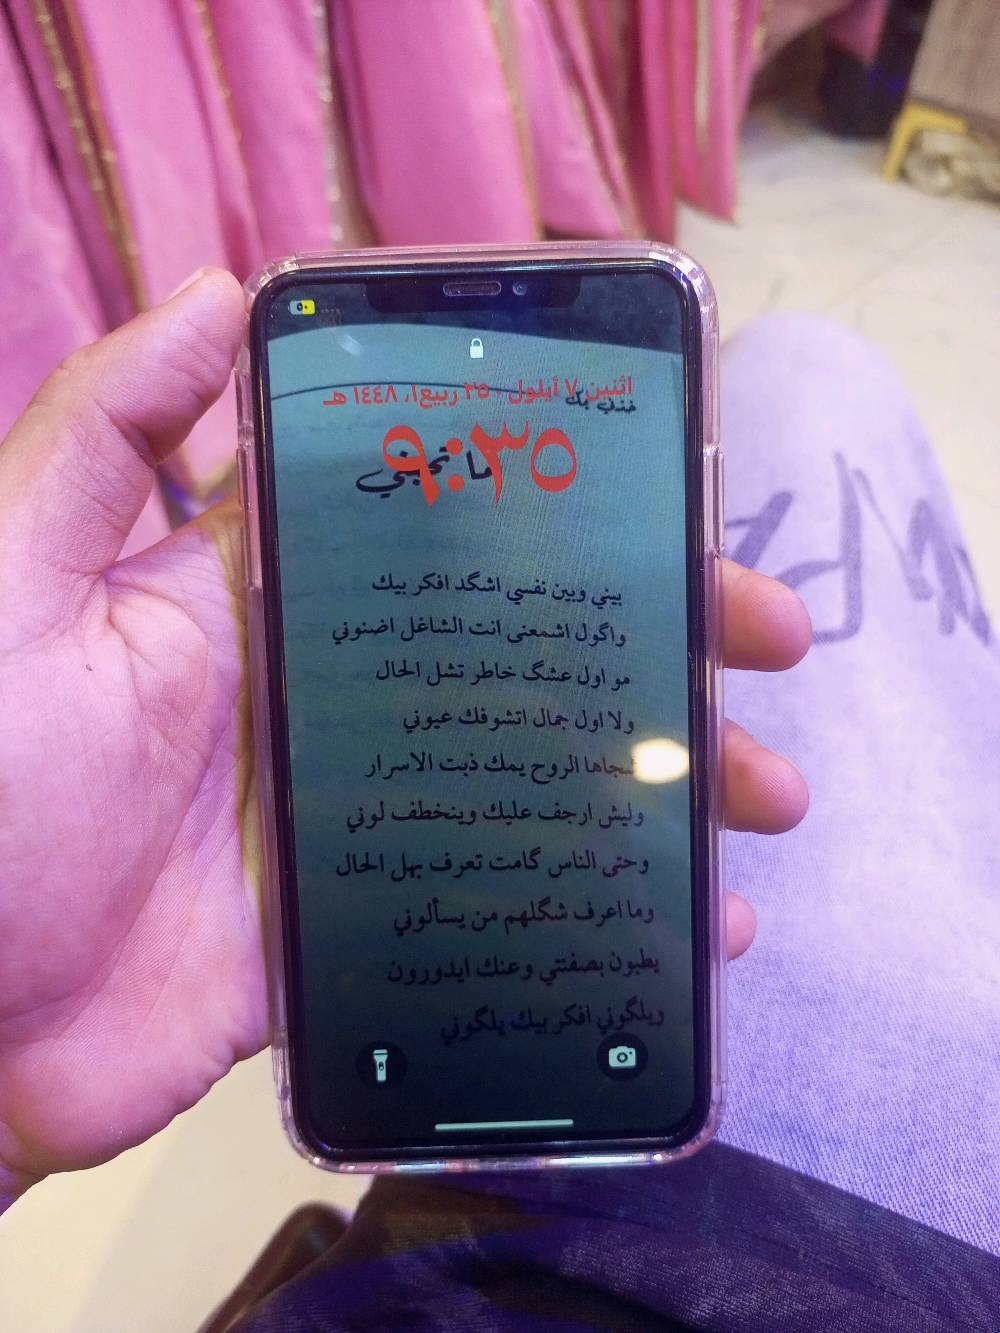 اثنين ٧ أيلول · ٢٥ ربيع١، ١٤٤٨ هـ
خذني بيك
٩:٣٥
ما تحبني
بيني وبين نفسي اشگد افكر بيك
واگول اشمعنى انت الشاغل اضنوني
مو اول عشگ خاطر تشل الحال
ولا اول جمال اتشوفك عيوني
شجاها الروح يمك ذبت الاسرار
وليش ارجف عليك وينخطف لوني
وحتى الناس گامت تعرف بهل الحال
وما اعرف شگلهم من يسألوني
يطبون بصفتي وعنك ايدورون
ويلگوني افكر بيك يلگوني